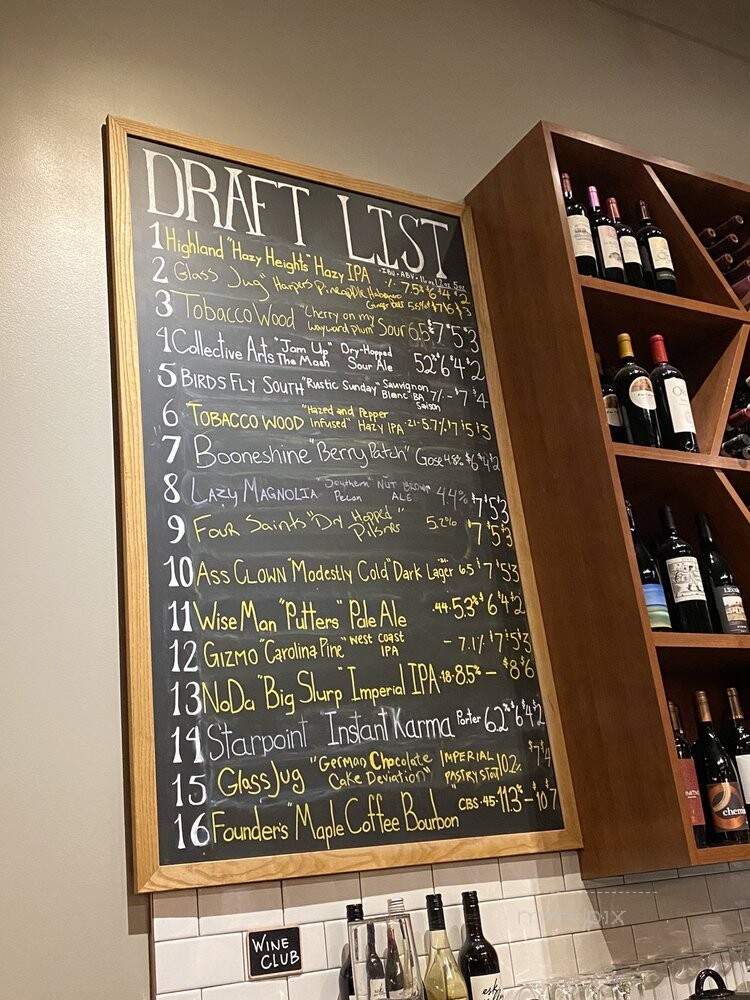 DRAFT LIST
·IBU·ABV·16oz 12oz 5oz
1 Highland "Hazy Heights" Hazy IPA ·/· 7.5% $6 $4 $2
2 Glass Jug "Harpers Pineapple Habanero
Ginger Beer 5.5% $7 $5 $3
3 Tobacco Wood "Cherry on my
wayward plum" Sour 6.5 $7 $5 $3
4 Collective Arts "Jam Up The Mash Dry-Hopped
Sour Ale 5.2% $6 $4 $2
5 BIRDS FLY SOUTH "Rustic Sunday - Sauvignon
Blanc BA
Saison 7% - $7 $4
6 TOBACCO WOOD "Hazed and Pepper
Infused" Hazy IPA ·21· 5.7% $7 $5 $3
7 Booneshine "Berry Patch" Gose 4.8% $6 $4 $2
8 LAZY MAGNOLIA "Southern Pecan NUT BROWN
ALE 4.4% $7 $5 $3
9 Four Saints "Dry Hopped"
Pilsner 5.2% $7 $5 $3
10 ASS CLOWN "Modestly Cold" Dark Lager 6.5 $7 $5 $3
11 Wise Man "Putters" Pale Ale ·44· 5.3% $6 $4 $2
12 GIZMO "Carolina Pine" West Coast
IPA - 7.1% $7 $5 $3
13 NoDa "Big Slurp" Imperial IPA ·18· 8.5% - $8 $6
14 Starpoint Instant Karma Porter 6.2% $6 $4 $2
15 Glass Jug "German Chocolate
Cake Deviation" IMPERIAL
PASTRY STOUT 10.2% $7 $4
16 Founder's "Maple Coffee Bourbon" CBS ·45· 11.3% - $10 $7
WINE
CLUB